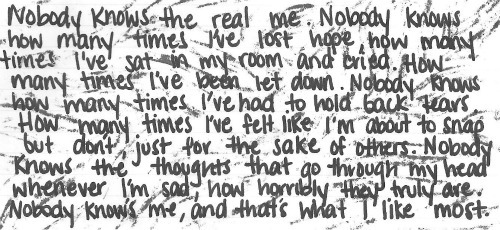 Nobody knows the real me. Nobody knows
how many times I've lost hope, how many
times I've sat in my room and cried. How
many times I've been let down. Nobody knows
how many times I've had to hold back tears.
How many times I've felt like I'm about to snap
but dont, just for the sake of others. Nobody
knows the thoughts that go through my head
whenever I'm sad, how horribly they truly are.
Nobody knows me, and that's what I like most.